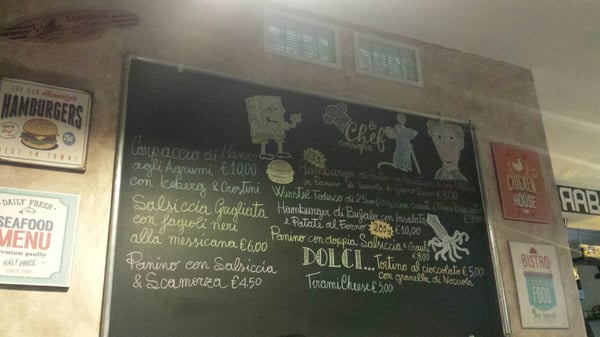 TRY OUR Homestyle
HAMBURGERS
BEST IN TOWN
DAILY FRESH
SEAFOOD
MENU
Premium quality
HALF PRICE
Carpaccio di Manzo
agli Agrumi €10,00
con Iceberg & Crostini
Salsiccia Grigliata
con fagioli neri
alla messicana €6,00
Panino con Salsiccia
& Scamorza €4,50
Lo Chef
consiglia
Hamburger di Pollo con
Wurstel Tedesco di 25cm
Hamburger di Bufalo con Insalata
e Patate al Forno €10,00
Panino con doppia Salsiccia
€8,00
DOLCI... Tortino al cioccolato €5,00
con granella di Nocciola
TiramiCheese €5,00
CHICKEN
HOUSE
BISTRO
FOOD
AAB